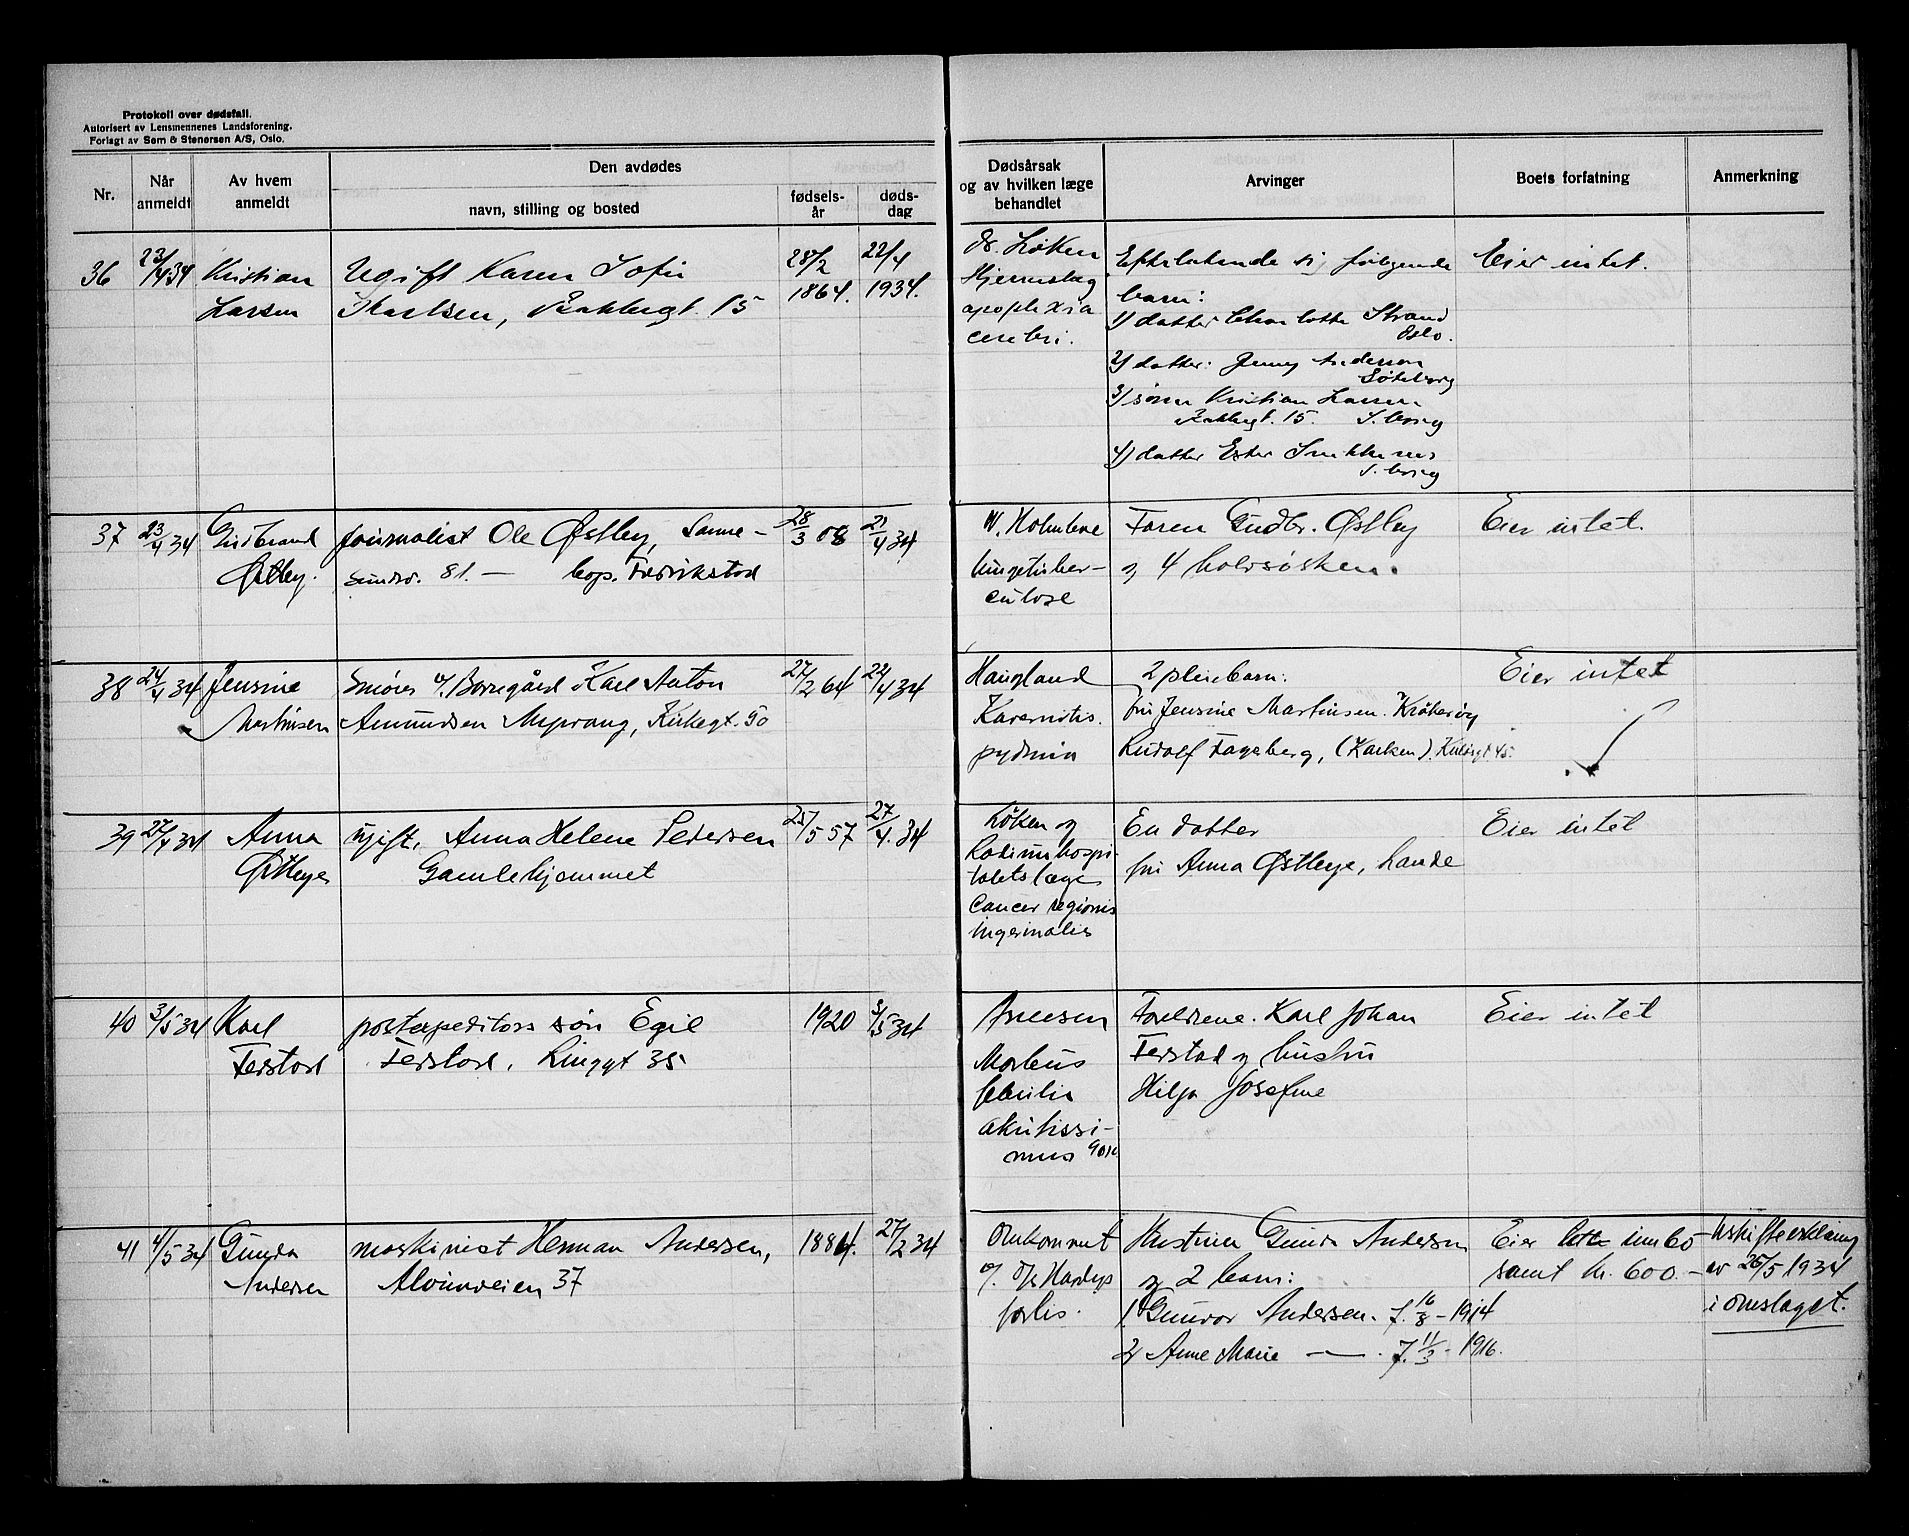 Protokoll over dødsfall.
Autorisert av Lensmennenes Landsforening.
Forlagt av Sem & Stenersen A/S, Oslo.
Nr.
Når anmeldt
Av hvem anmeldt
Den avdødes
navn, stilling og bosted
fødsels-
år
døds-
dag
Dødsårsak
og av hvilken læge
behandlet
Arvinger
Boets forfatning
Anmerkning
36 23/4 34 Kristian
Larsen
Ugift Karen Sofie
Karlsen, Bakkegt. 15
28/2
1864.
22/4
1934.
dr. Løken
Hjerneslag
apoplexia
cerebri.
Efterlatende sig følgende
barn:
1) datter Charlotte Strand
Oslo.
2) datter: Jenny Anderson
Göteborg
3) sønn Kristian Larsen
Bakkegt. 15. S.borg
4) datter Ester
S.borg
Eier intet.
37 23/4 34 Gudbrand
Østby.
journalist Ole Østby, Sanne-
sundsv. 81. — bop. Fredrikstad
28/3 08
21/4 34
W. Holmboe
lungetuber-
culose
Faren Gudbr. Østby
og 4 halvsøsken.
Eier intet.
38 24/4 34 Jensine
Martinsen
v/ Borregård Karl Anton
Amundsen Nysprang, Kirkegt. 50
27/2 64
22/4 34
Haugland
pydmia
2 pleiebarn:
fru Jensine Martinsen. Kråkerøy
Rudolf Fagerberg, (Karlsen). Kirkegt. 45.
Eier intet
39 27/4 34 Anna
Østbye
ugift, Anna Helene Pedersen
Gamlehjemmet
25/5 57
27/4. 34
Løken og
Radiumhospi-
talets læge
Cancer regionis
ingerinalis
En datter
fru Anna Østbye, Lande
Eier intet
40 3/5 34 Karl
Ferstad
postexpeditørs søn Egil
Ferstad, Ringgt 35
1920
3/5 34
Arnesen
Morbus
akutissi-
mus
Foreldrene. Karl Johan
Ferstad og hustru
Hilja Josefine
Eier intet
41 4/5 34 Gunda
Andersen
maskinist Herman Andersen,
Alvimveien 37
1884.
27/2 34
Omkommet
v/ D/S Hardys
forlis.
Hustruen Gunda Andersen
og 2 barn:
1. Gunvor Andersen. f. 16/8 - 1914
2/ Anne Marie —— . f. 11/3 - 1916.
Eier litt innbo
samt kr. 600. -
Uskifteerklæring
av 25/5 1934
i omslaget.